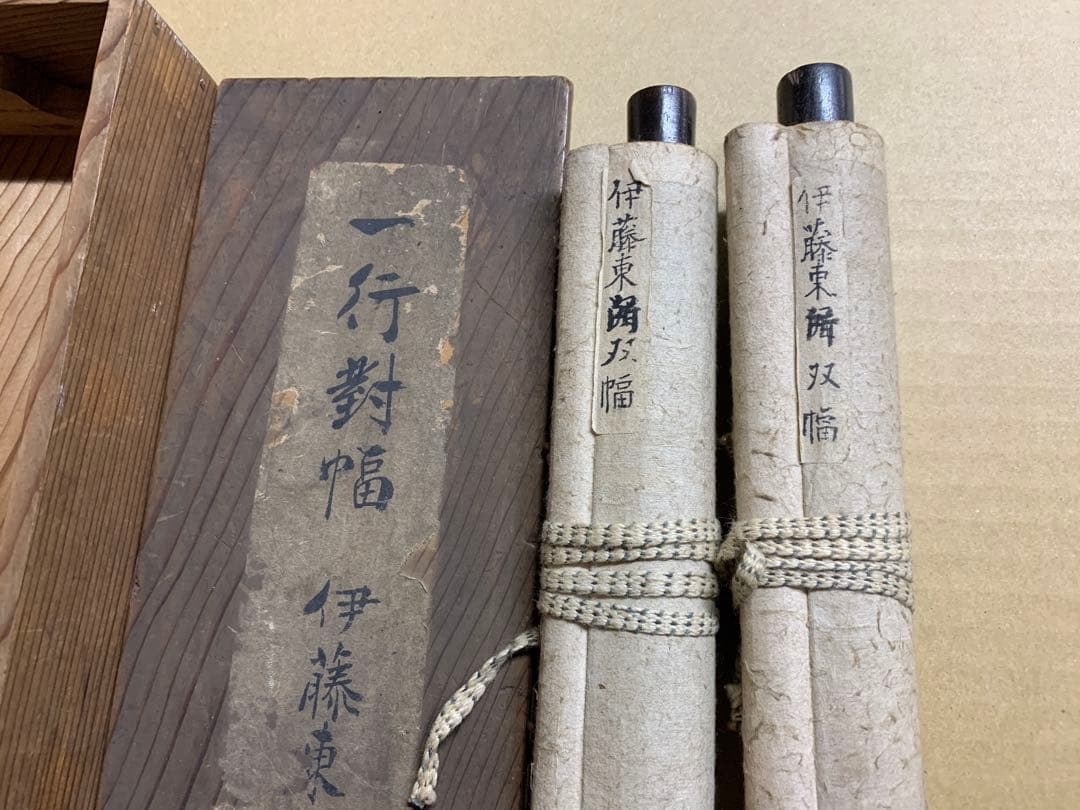 伊藤東双幅
伊藤東双幅
一行對幅 伊藤東